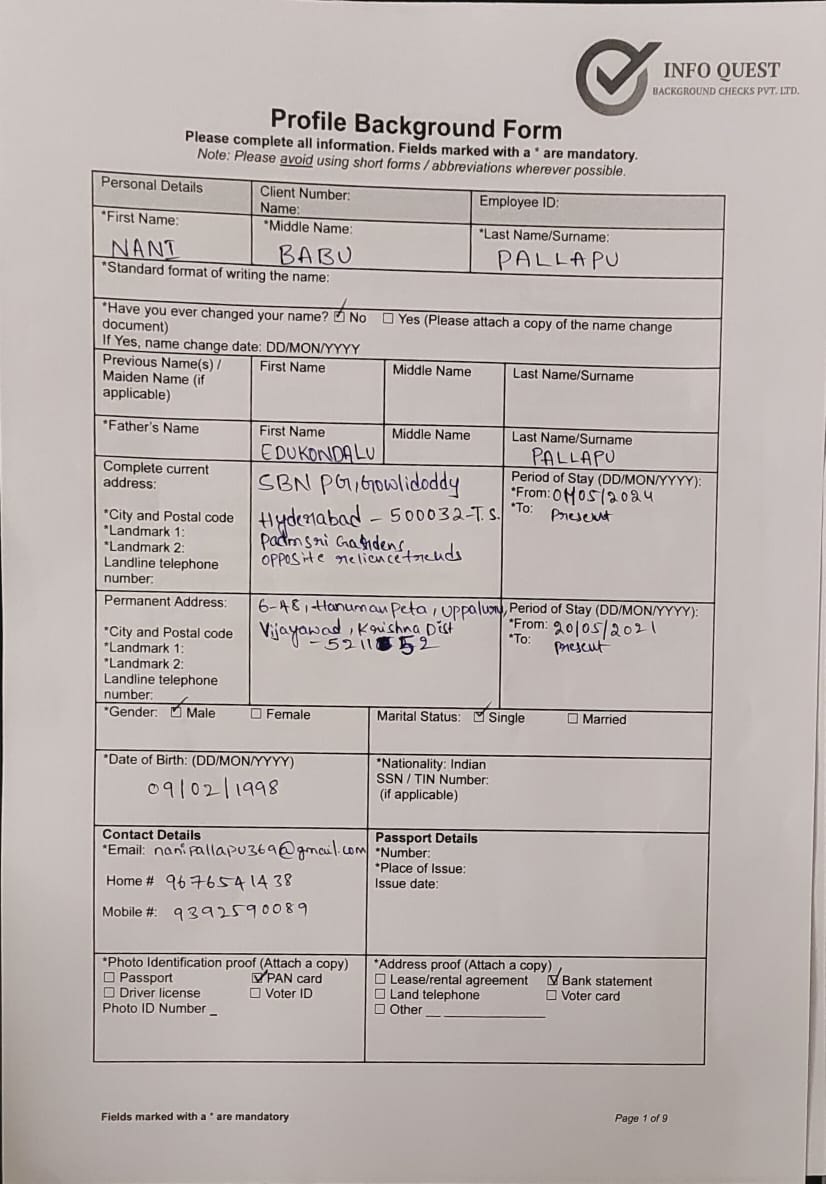 INFO QUEST
BACKGROUND CHECKS PVT. LTD.
Profile Background Form
Please complete all information. Fields marked with a * are mandatory.
Note: Please avoid using short forms / abbreviations wherever possible.
Personal Details
Client Number:
Name:
Employee ID:
*First Name:
NANI
*Middle Name:
BABU
*Last Name/Surname:
PALLAPU
*Standard format of writing the name:
*Have you ever changed your name? ☑ No ☐ Yes (Please attach a copy of the name change
document)
If Yes, name change date: DD/MON/YYYY
Previous Name(s) /
Maiden Name (if
applicable)
First Name
Middle Name
Last Name/Surname
*Father's Name
First Name
EDUKONDALU
Middle Name
Last Name/Surname
PALLAPU
Complete current
address:
*City and Postal code
*Landmark 1:
*Landmark 2:
Landline telephone
number:
SBN PG, Gowlidoddy
Hyderabad - 500032-T.S.
Padmsri Gardens
opposite reliencetrends
Period of Stay (DD/MON/YYYY):
*From: 05/2024
*To: Present
Permanent Address:
*City and Postal code
*Landmark 1:
*Landmark 2:
Landline telephone
number:
6-48, Hanuman Peta, Uppaluru,
Vijayawad, Krishna Dist
Period of Stay (DD/MON/YYYY):
*From: 20/05/2021
*To: present
*Gender: ☑ Male ☐ Female
Marital Status: ☑ Single ☐ Married
*Date of Birth: (DD/MON/YYYY)
09/02/1998
*Nationality: Indian
SSN / TIN Number:
(if applicable)
Contact Details
*Email: nanipallapu369@gmail.com
Home # 9676541438
Mobile #: 9392590089
Passport Details
*Number:
*Place of Issue:
Issue date:
*Photo Identification proof (Attach a copy)
☐ Passport ☑ PAN card
☐ Driver license ☐ Voter ID
Photo ID Number _
*Address proof (Attach a copy)
☐ Lease/rental agreement ☑ Bank statement
☐ Land telephone ☐ Voter card
☐ Other __ ______________
Fields marked with a * are mandatory
Page 1 of 9